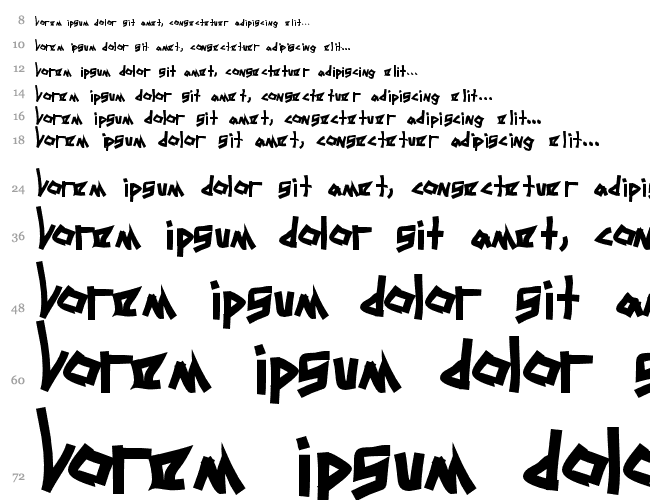 8 Lorem ipsum dolor sit amet, consectetuer adipiscing elit...
10 Lorem ipsum dolor sit amet, consectetuer adipiscing elit...
12 Lorem ipsum dolor sit amet, consectetuer adipiscing elit...
14 Lorem ipsum dolor sit amet, consectetuer adipiscing elit...
16 Lorem ipsum dolor sit amet, consectetuer adipiscing elit...
18 Lorem ipsum dolor sit amet, consectetuer adipiscing elit...
24 Lorem ipsum dolor sit amet, consectetuer adipi
36 Lorem ipsum dolor sit amet, con
48 Lorem ipsum dolor sit a
60 Lorem ipsum dolor s
72 Lorem ipsum dolo